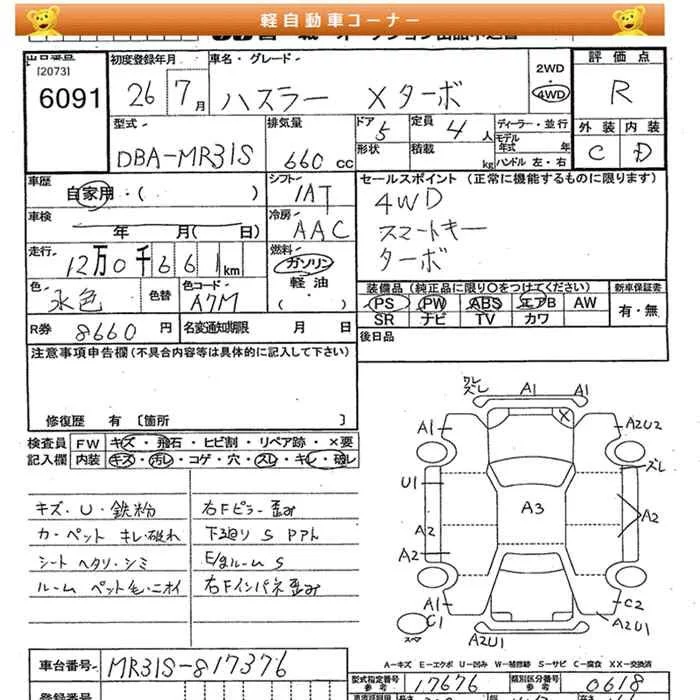 軽自動車コーナー
出品番号 初度登録年月 車名・グレード
[2073]
6091 26 7月 ハスラー Xターボ
2WD
4WD
評価点
R
外装 内装
C D
型式 排気量 ドア 定員 ディーラー・並行
DBA-MR31S 660 cc 5 4人
モデル年式 年
形状 積載 kg ハンドル 左・右
車歴 シフト セールスポイント (正常に機能するものに限ります)
自家用・( ) IAT
4WD
スマートキー
ターボ
車検 冷房
年 月( 日) AAC
走行 燃料
12万0千661km ガソリン
軽油
( )
色 色替 色コード
水色 A7M
装備品 (純正品に限り〇をつけてください) 新車保証書
PS PW ABS エアB AW 有・無
SR ナビ TV カワ
R券 8660円 名変通知期限 月 日
後日品
注意事項申告欄(不具合内容等は具体的に記入して下さい)
修復歴 有 [箇所 ]
検査員 FW キズ・飛石・ヒビ割・リペア跡・×要
記入欄 内装 キズ・汚レ・コゲ・穴・スレ・キレ・破レ
キズ・U・鉄粉 右Fピラー歪み
カ・ペット キレ・破れ 下廻り S
シート ヘタリ・シミ E/gルーム S
ルーム ペット毛・ニオイ 右Fインパネ歪み
ワレ
ズレ A1 A1
A1 X A2U2
ズレ
U1
A3 A2
A2
A2
A1 C2
C1 A2U1
スペア A2U1
A-キズ E-エクボ U-凹み W-補修跡 S-サビ C-腐食 XX-交換済
車台番号 MR31S-817376
型式指定番号 参考 17676 類別区分番号 参考 0618
登録番号